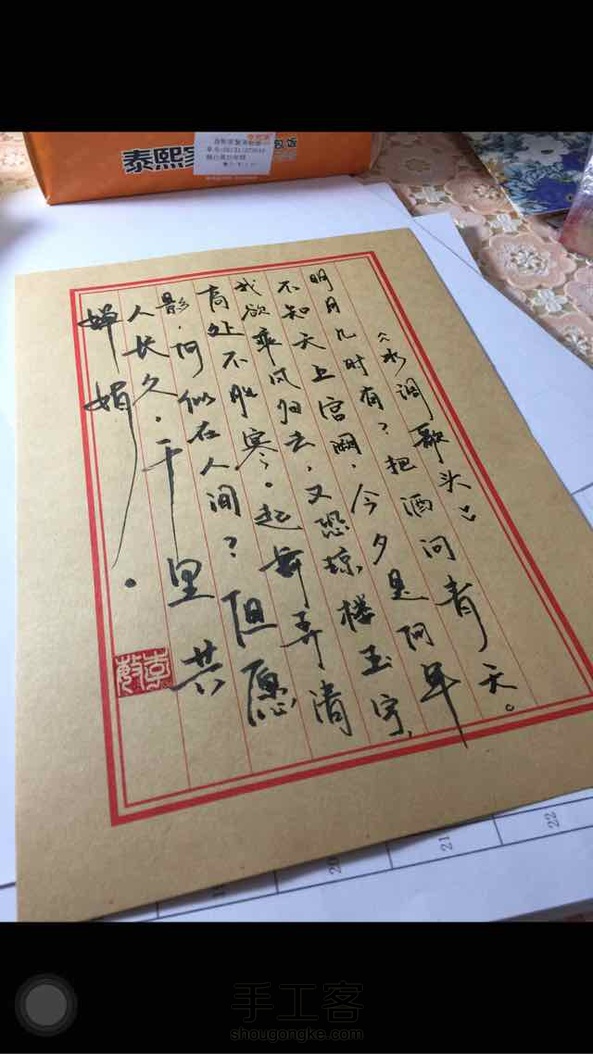 《水调歌头》
明月几时有？把酒问青天。
不知天上宫阙，今夕是何年
我欲乘风归去，又恐琼楼玉宇，
高处不胜寒。起舞弄清
影，何似在人间？但愿
人长久，千里共
婵娟。
李敏
泰熙家
饭
20
21
22
手工客
shougongke.com